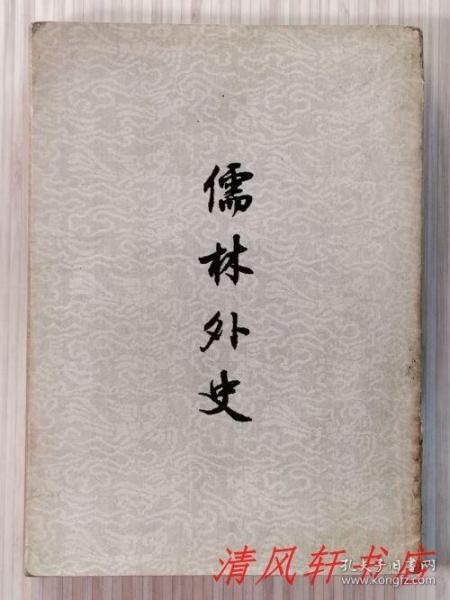 儒林外史
清风轩书店
孔夫子旧书网
www.kongfz.com